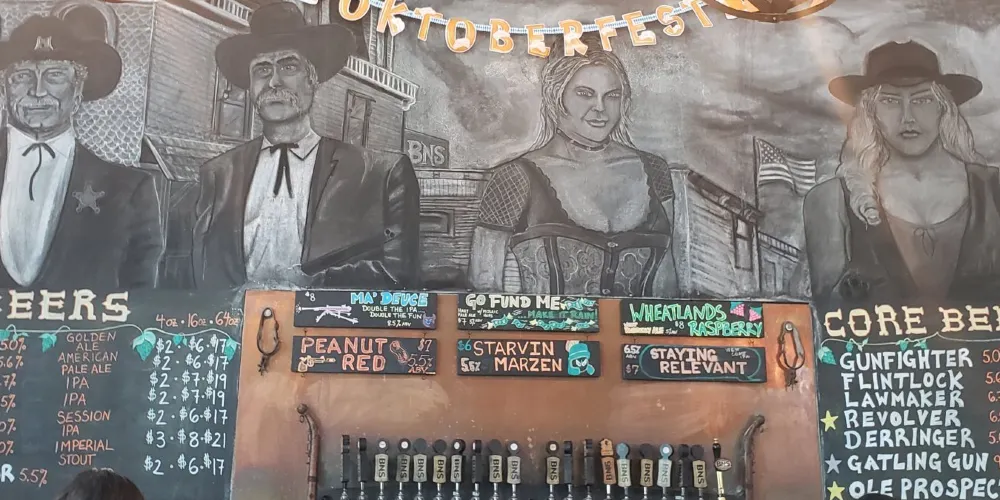 OKTOBERFEST
BNS
EERS
4oz • 16oz • 64oz
5.0%
GOLDEN
ALE
$2 • $6 • $17
AMERICAN
PALE ALE
$2 • $6 • $17
IPA
$2 • $7 • $19
IPA
$2 • $7 • $19
SESSION
IPA
$2 • $6 • $17
IMPERIAL
STOUT
$3 • $8 • $21
5.5%
$2 • $6 • $17
$8
MA' DEUCE
DOUBLE THE IPA
DOUBLE THE FUN!
8.5% ABV
GO FUND ME
MAKE IT RAIN
WHEATLANDS
$8 RASPBERRY
PEANUT
RED
$7
5.5%
$6
5.6%
STARVIN
MARZEN
STAYING
RELEVANT
CORE BEE
GUNFIGHTER 5.0
FLINTLOCK 5.
LAWMAKER
REVOLVER
DERRINGER 5.
GATLING GUN
OLE PROSPEC
BNS
BNS
BNS
BNS
BNS
BNS
BNS
BNS
BNS
BNS
BNS
BNS